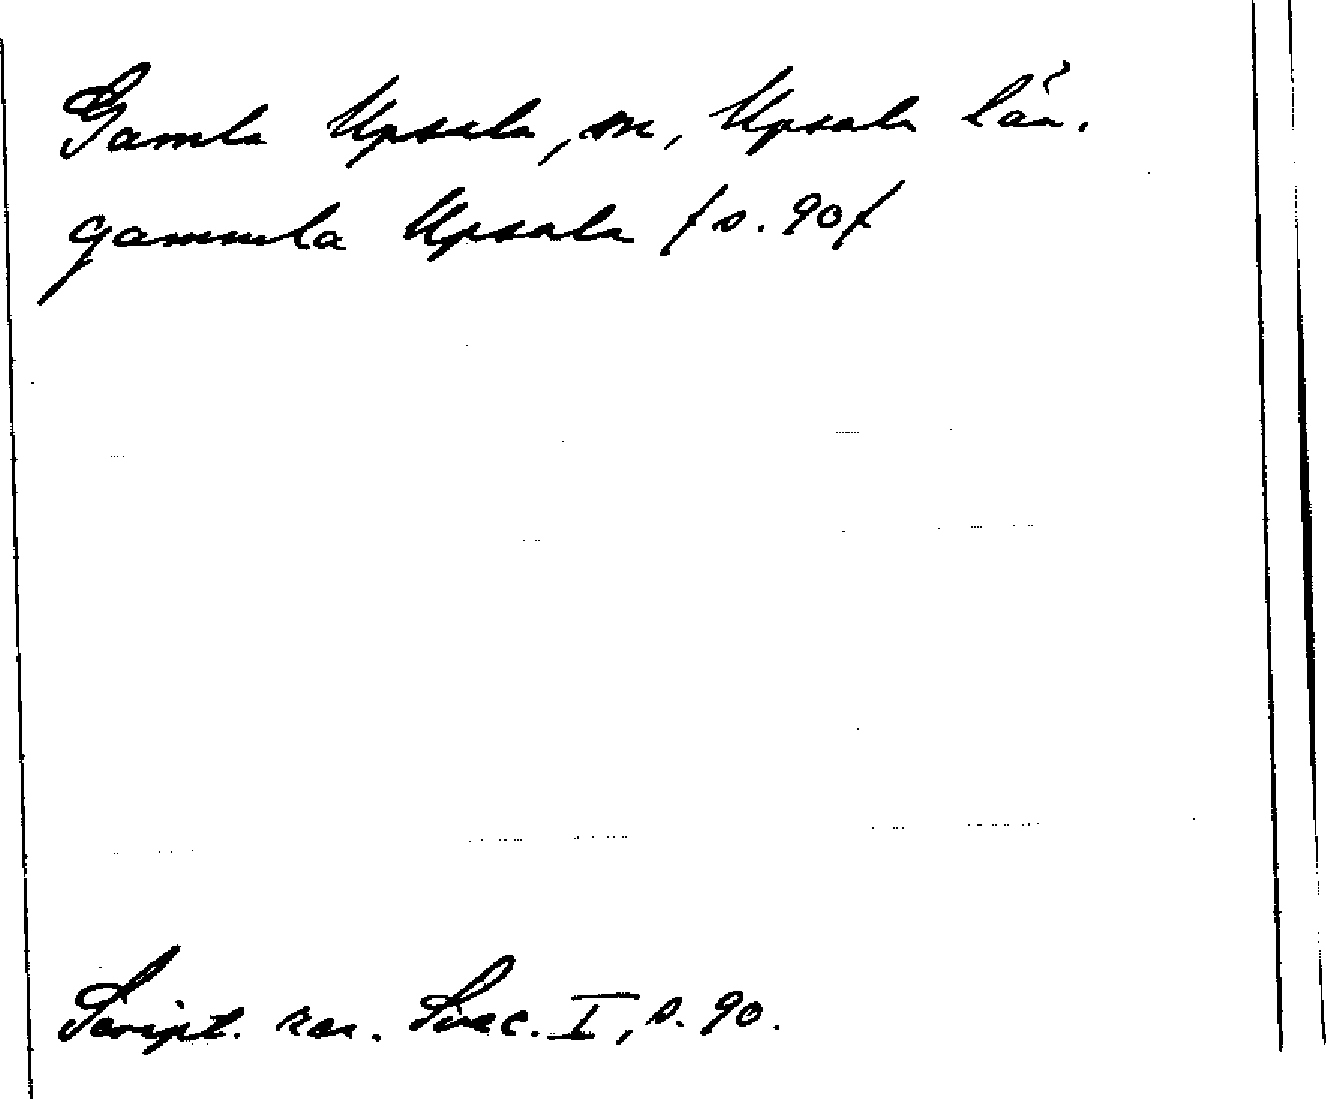 Gamla Upsala, sn, Upsala län.
gammla Upsala /s. 90/
Script. rer. Svec. I, s. 90.